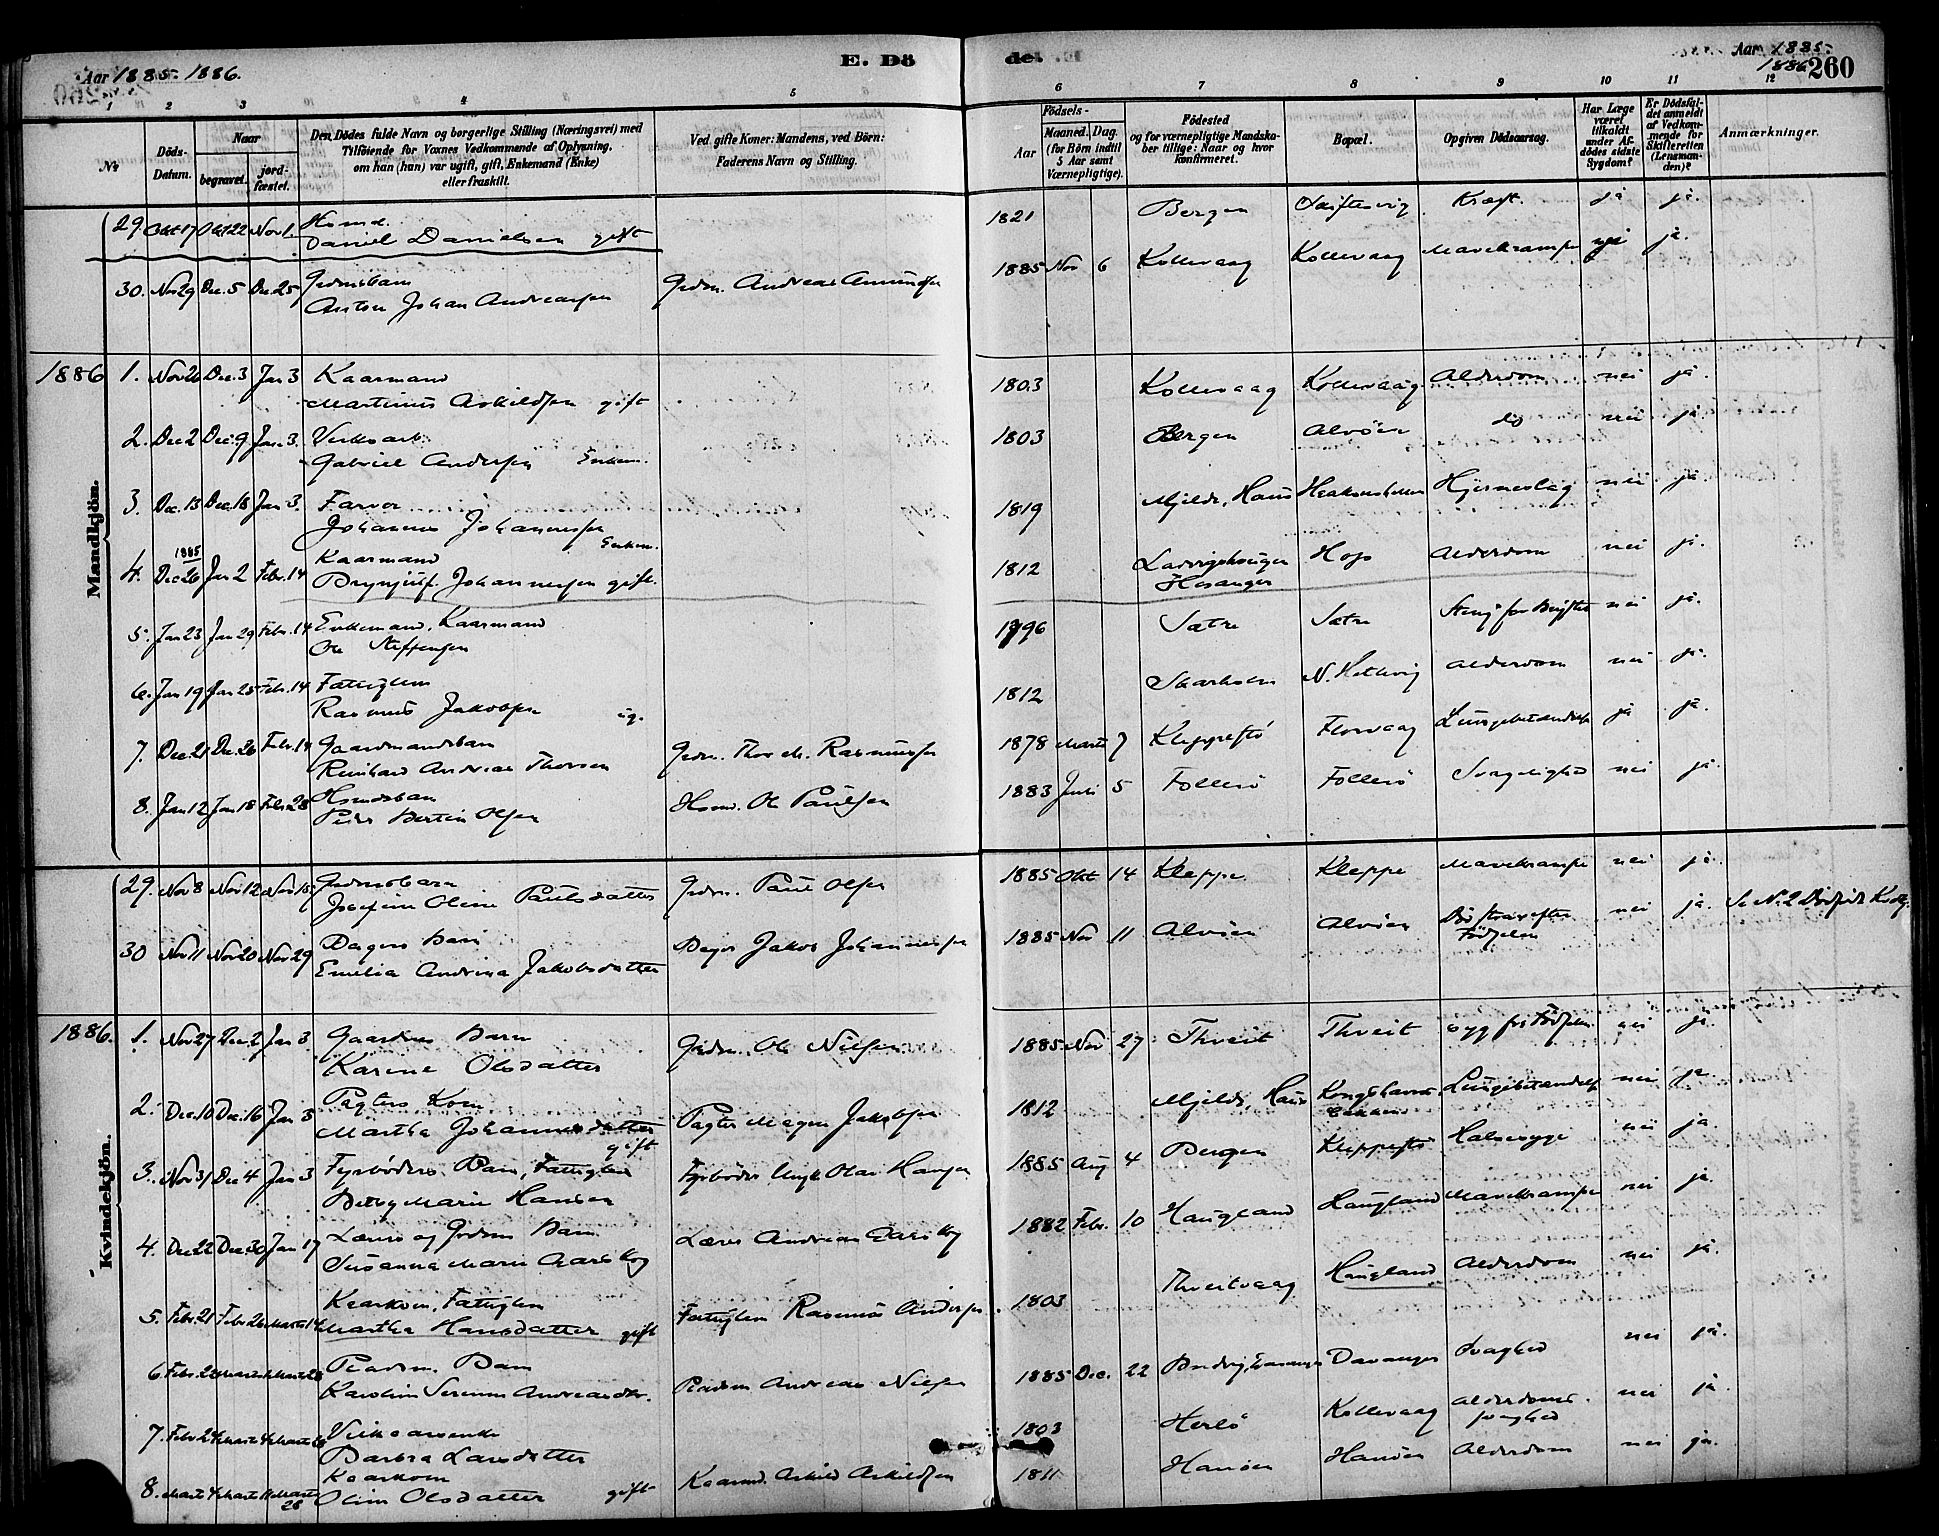 Aar 1885-1886.
E. Dö
de.
Aar 1885-
1886
260
1 2 3 4 5 6 7 8 9 10 11 12
No.
Döds-Datum.
Naar
begravet.
jordfæstet.
Den Dödes fulde Navn og borgerlige Stilling (Næringsvei) med
Tilföiende for Voxnes Vedkommende af Oplysning,
om han (hun) var ugift, gift, Enkemand (Enke)
eller fraskilt.
Ved gifte Koner: Mandens, ved Börn:
Faderens Navn og Stilling.
Födsels-
Aar
Maaned. Dag.
(for Börn indtil
5 Aar samt
Værnepligtige).
Födested
og for værnepligtige Mandskaber tillige: Naar og hvor
konfirmeret.
Bopæl.
Opgiven Dödsaarsag.
Har Læge
været
tilkaldt
under Afdödes sidste
Sygdom?
Er Dödsfaldet anmeldt
af Vedkommende for
Skifteretten
(Lensmanden)?
Anmærkninger.
Mandkjön.
29. Okt 17 Okt 22 Nov 1. Husmd. 1821 Bergen Kræft. ja ja.
Daniel Danielsen gift
30. Nov 29 Dec. 5 Dec 25 Grdmsbarn Grdm. Andreas Amundsen 1885 Nov 6 Kollevaag Kollevaag Mavekrampe nei ja.
Anton Johan Andreassen
1886 1. Nov 26 Dec. 3 Jan 3 Kaarmand 1803 Kollevaag Kollevaag Alderdom nei ja.
Martinus Askildsen gift
2. Dec 2 Dec. 9 Jan. 3. Verksarb. 1803 Bergen Alvöen do nei ja
Gabriel Andersen Enkem.
3. Dec. 13 Dec. 18 Jan 3. Farver 1819 Mjelde, Haus Hjerneslag nei ja
Johannes Johannessen Enkem.
4. 1885 Dec 26 Jan 2 Febr. 14 Kaarmand 1812 Hop Alderdom nei ja.
Brynjulf Johannessen gift. Hosanger
5. Jan 23 Jan 29 Febr. 14 Enkemand, Kaarmand 1796 Sætre Sætre nei ja.
Ole Steffensen
6. Jan 19 Jan 25 Febr. 14 Fattiglem 1812 Skarholm Alderdom nei ja.
Rasmus Jakobsen ug.
7. Dec. 21 Dec. 26 Febr. 14 Gaardmandsbarn Grdm. Thore M. Rasmussen 1878 Marts 7 Kleppestö Florvaag Lungebetændelse ja ja.
Reinhard Andreas Thorsen
8. Jan 12 Jan 18 Febr 28 Husmdsbarn Husm. Ole Paulsen 1883 Juli 5 Follesö Follesö Svagelighed nei ja.
Peder Bertin Olsen
Kvindekjön.
29. Nov 8 Nov 12 Nov 15 Grdmsbarn Grdm. Paul Olsen 1885 Okt 14 Kleppe Kleppe Mavekrampe nei ja.
Josefine Oline Paulsdatter
30 Nov 11 Nov 20 Nov 29 Bagers Barn Bager Jakob Johannessen 1885 Nov 11 Alvöen Alvöen Död strax efter Födselen nei ja. Se No. 2 Dödfödte Kvdkj.
Emilia Andrina Jakobsdatter
1886. 1. Nov 27 Dec. 2 Jan 3 Gaardms Barn Grdm. Ole Nilsen 1885 Nov 27 Thveit Thveit syg fra Födselen nei ja.
Karine Olsdatter
2. Dec. 10 Dec. 16 Jan 3 Pagters Kone Pagter Mogens Jakobsen 1812 Mjelde, Haus Lungebetændelse nei ja
Martha Johannesdatter gift
3. Nov 31 Dec 4 Jan 3 Fyrböders Barn, Fattiglem 1885 Aug 4 Bergen Kleppestö Halssyge nei ja.
Betsy Marie Hansen
4. Dec 22 Dec 30 Jan 17 Lærer og Grdms Barn Lærer Andreas Aarskog 1882 Febr. 10 Haugland Haugland Mavekrampe nei ja.
Susanna Marie Aarskog
5. Febr 21 Febr 26 Marts 14 Kaarkone, Fattiglem Fattiglem Rasmus Andersen 1803 Thveitvaag Haugland Alderdom nei ja.
Martha Hansdatter gift
6. Barn Andreas Nilsen 1885 Dec. 22 Davanger Svaghed nei ja.
Karoline Andreasdtr.
7. Febr 24 1803 Herlö Kollevaag Alderdoms svaghed nei ja
Barbra Larsdatter
8. Marts 4 Marts 11 Marts 28 Kaarkone Kaarmd. Askild Askildsen 1811 Hanöen Hanöen Alderdom nei ja.
Oline Olsdatter gift